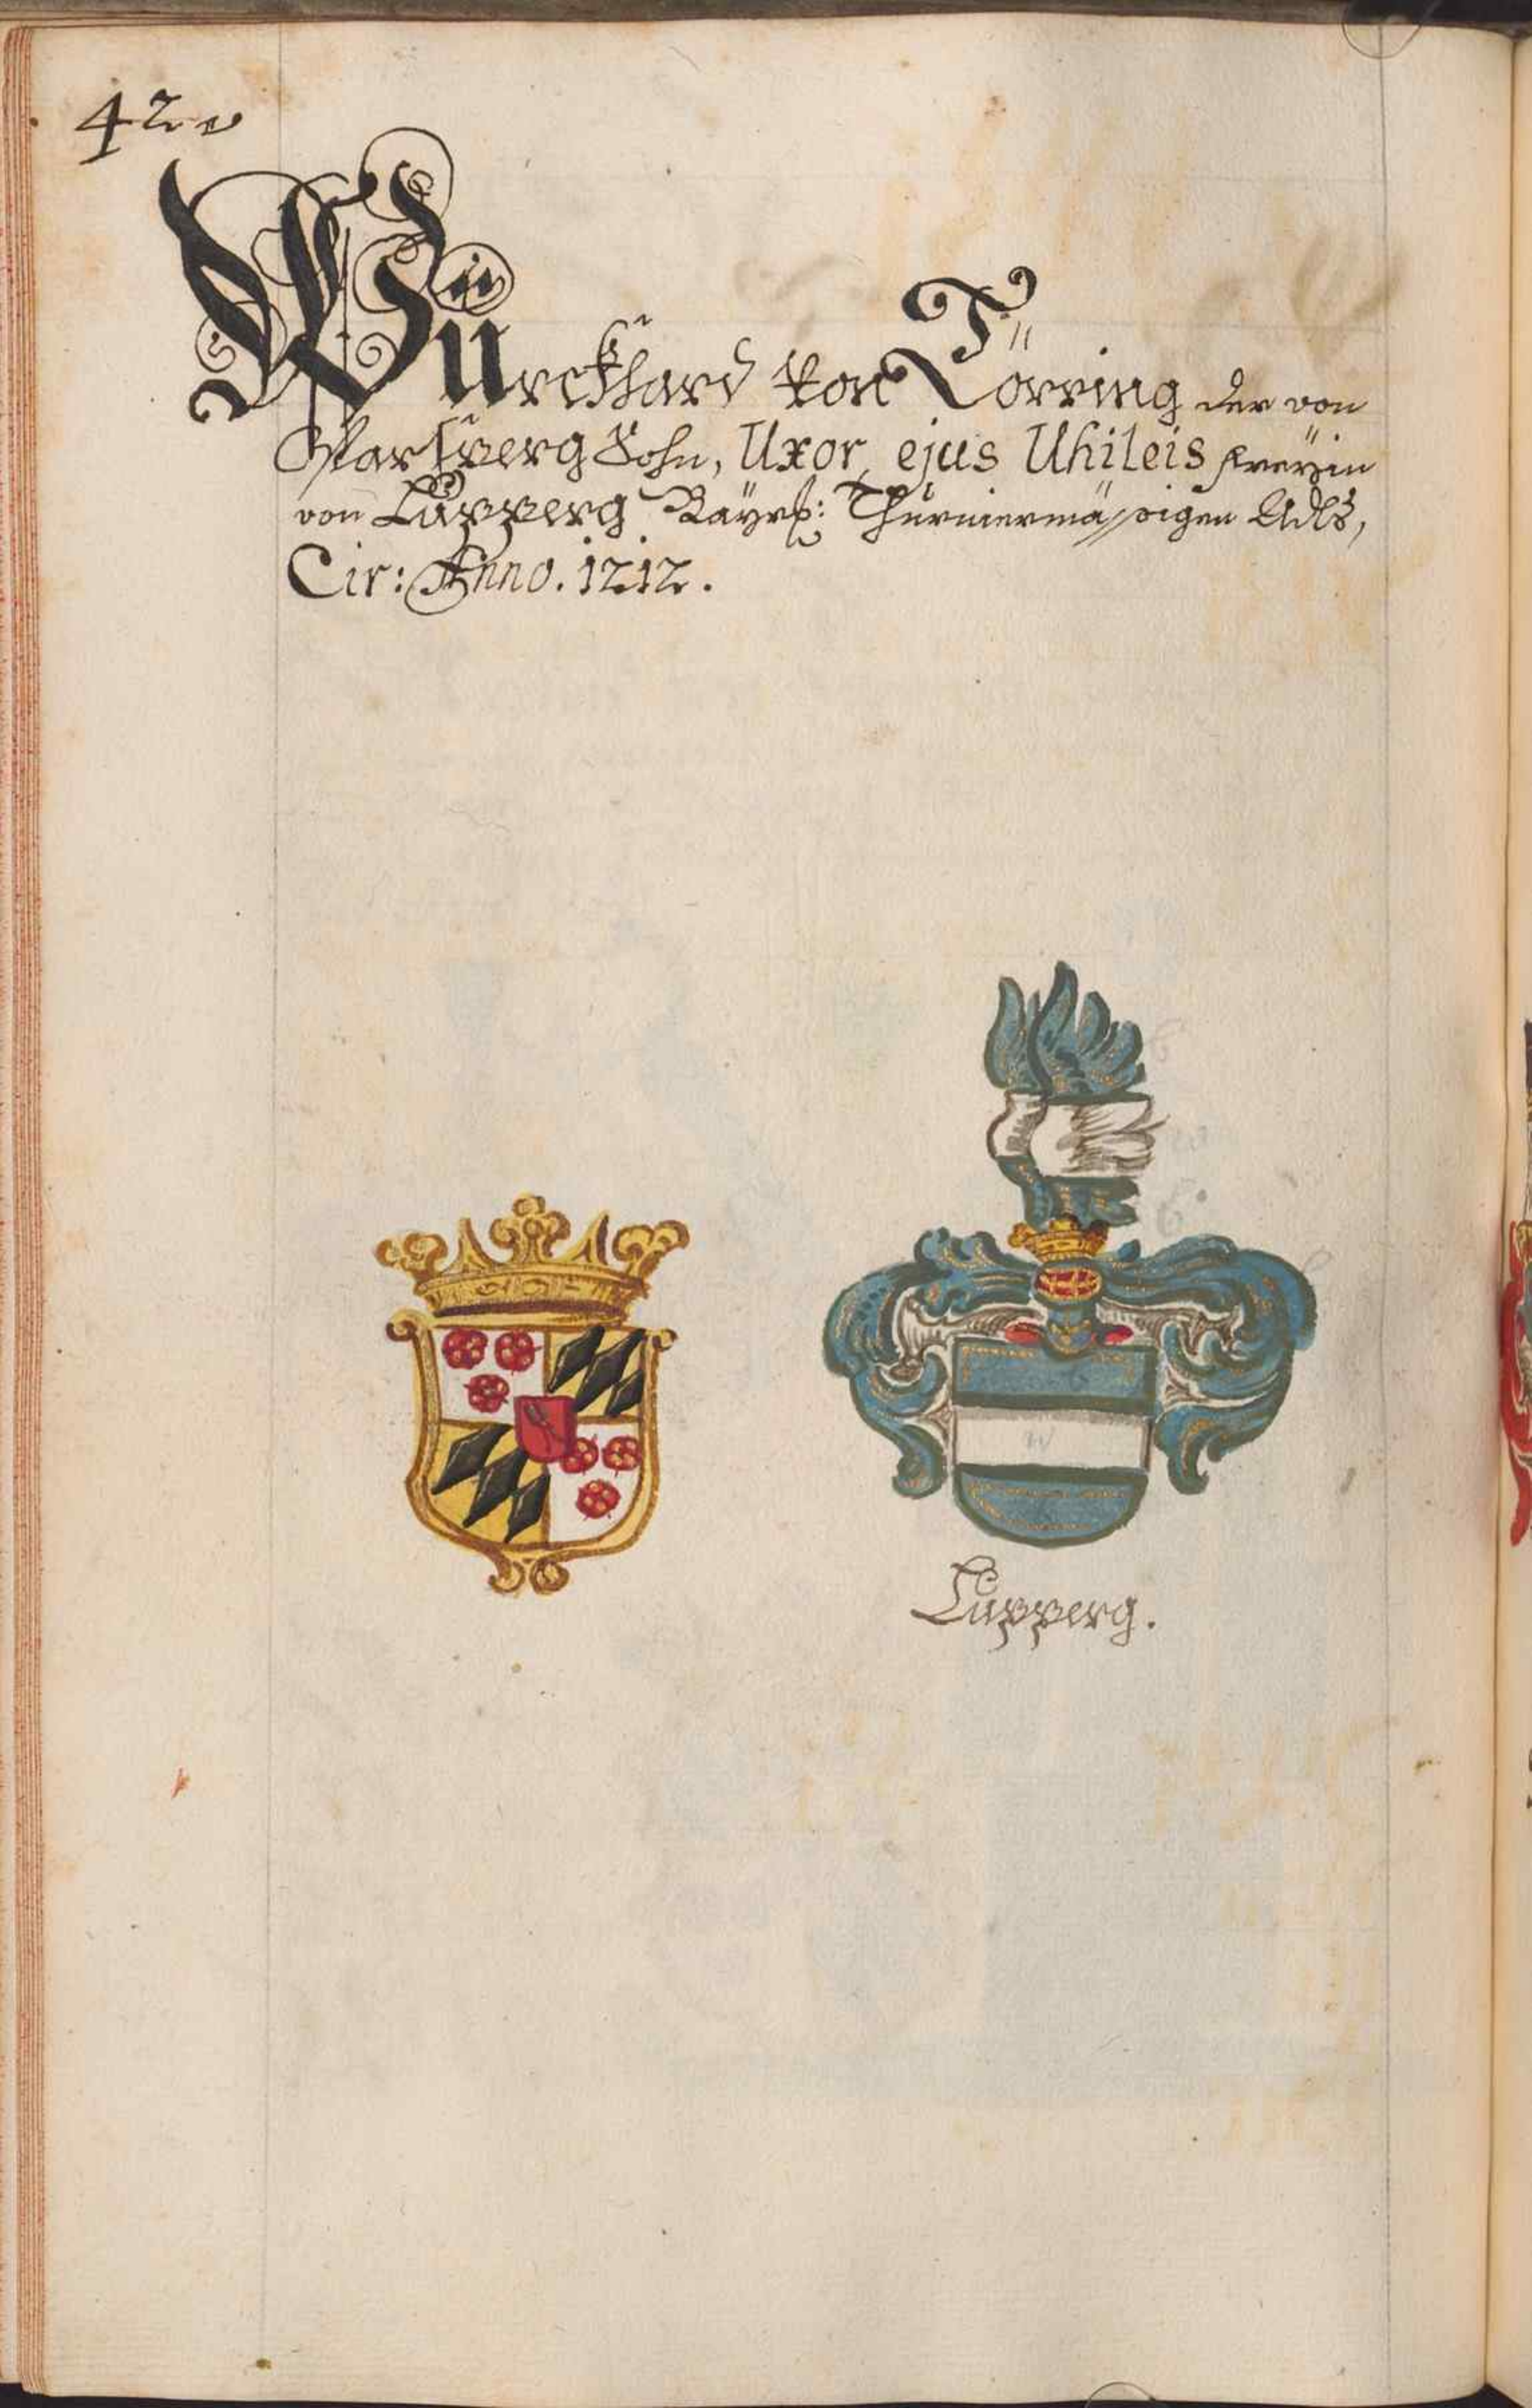 42
Würckhard von Törring der von
Parsperg Sohn, Uxor ejus Uhileis freÿin
von Lupperg Bäyrß: Thurniermäßigen Adls,
Cir: Anno. 1212.
Lupperg.